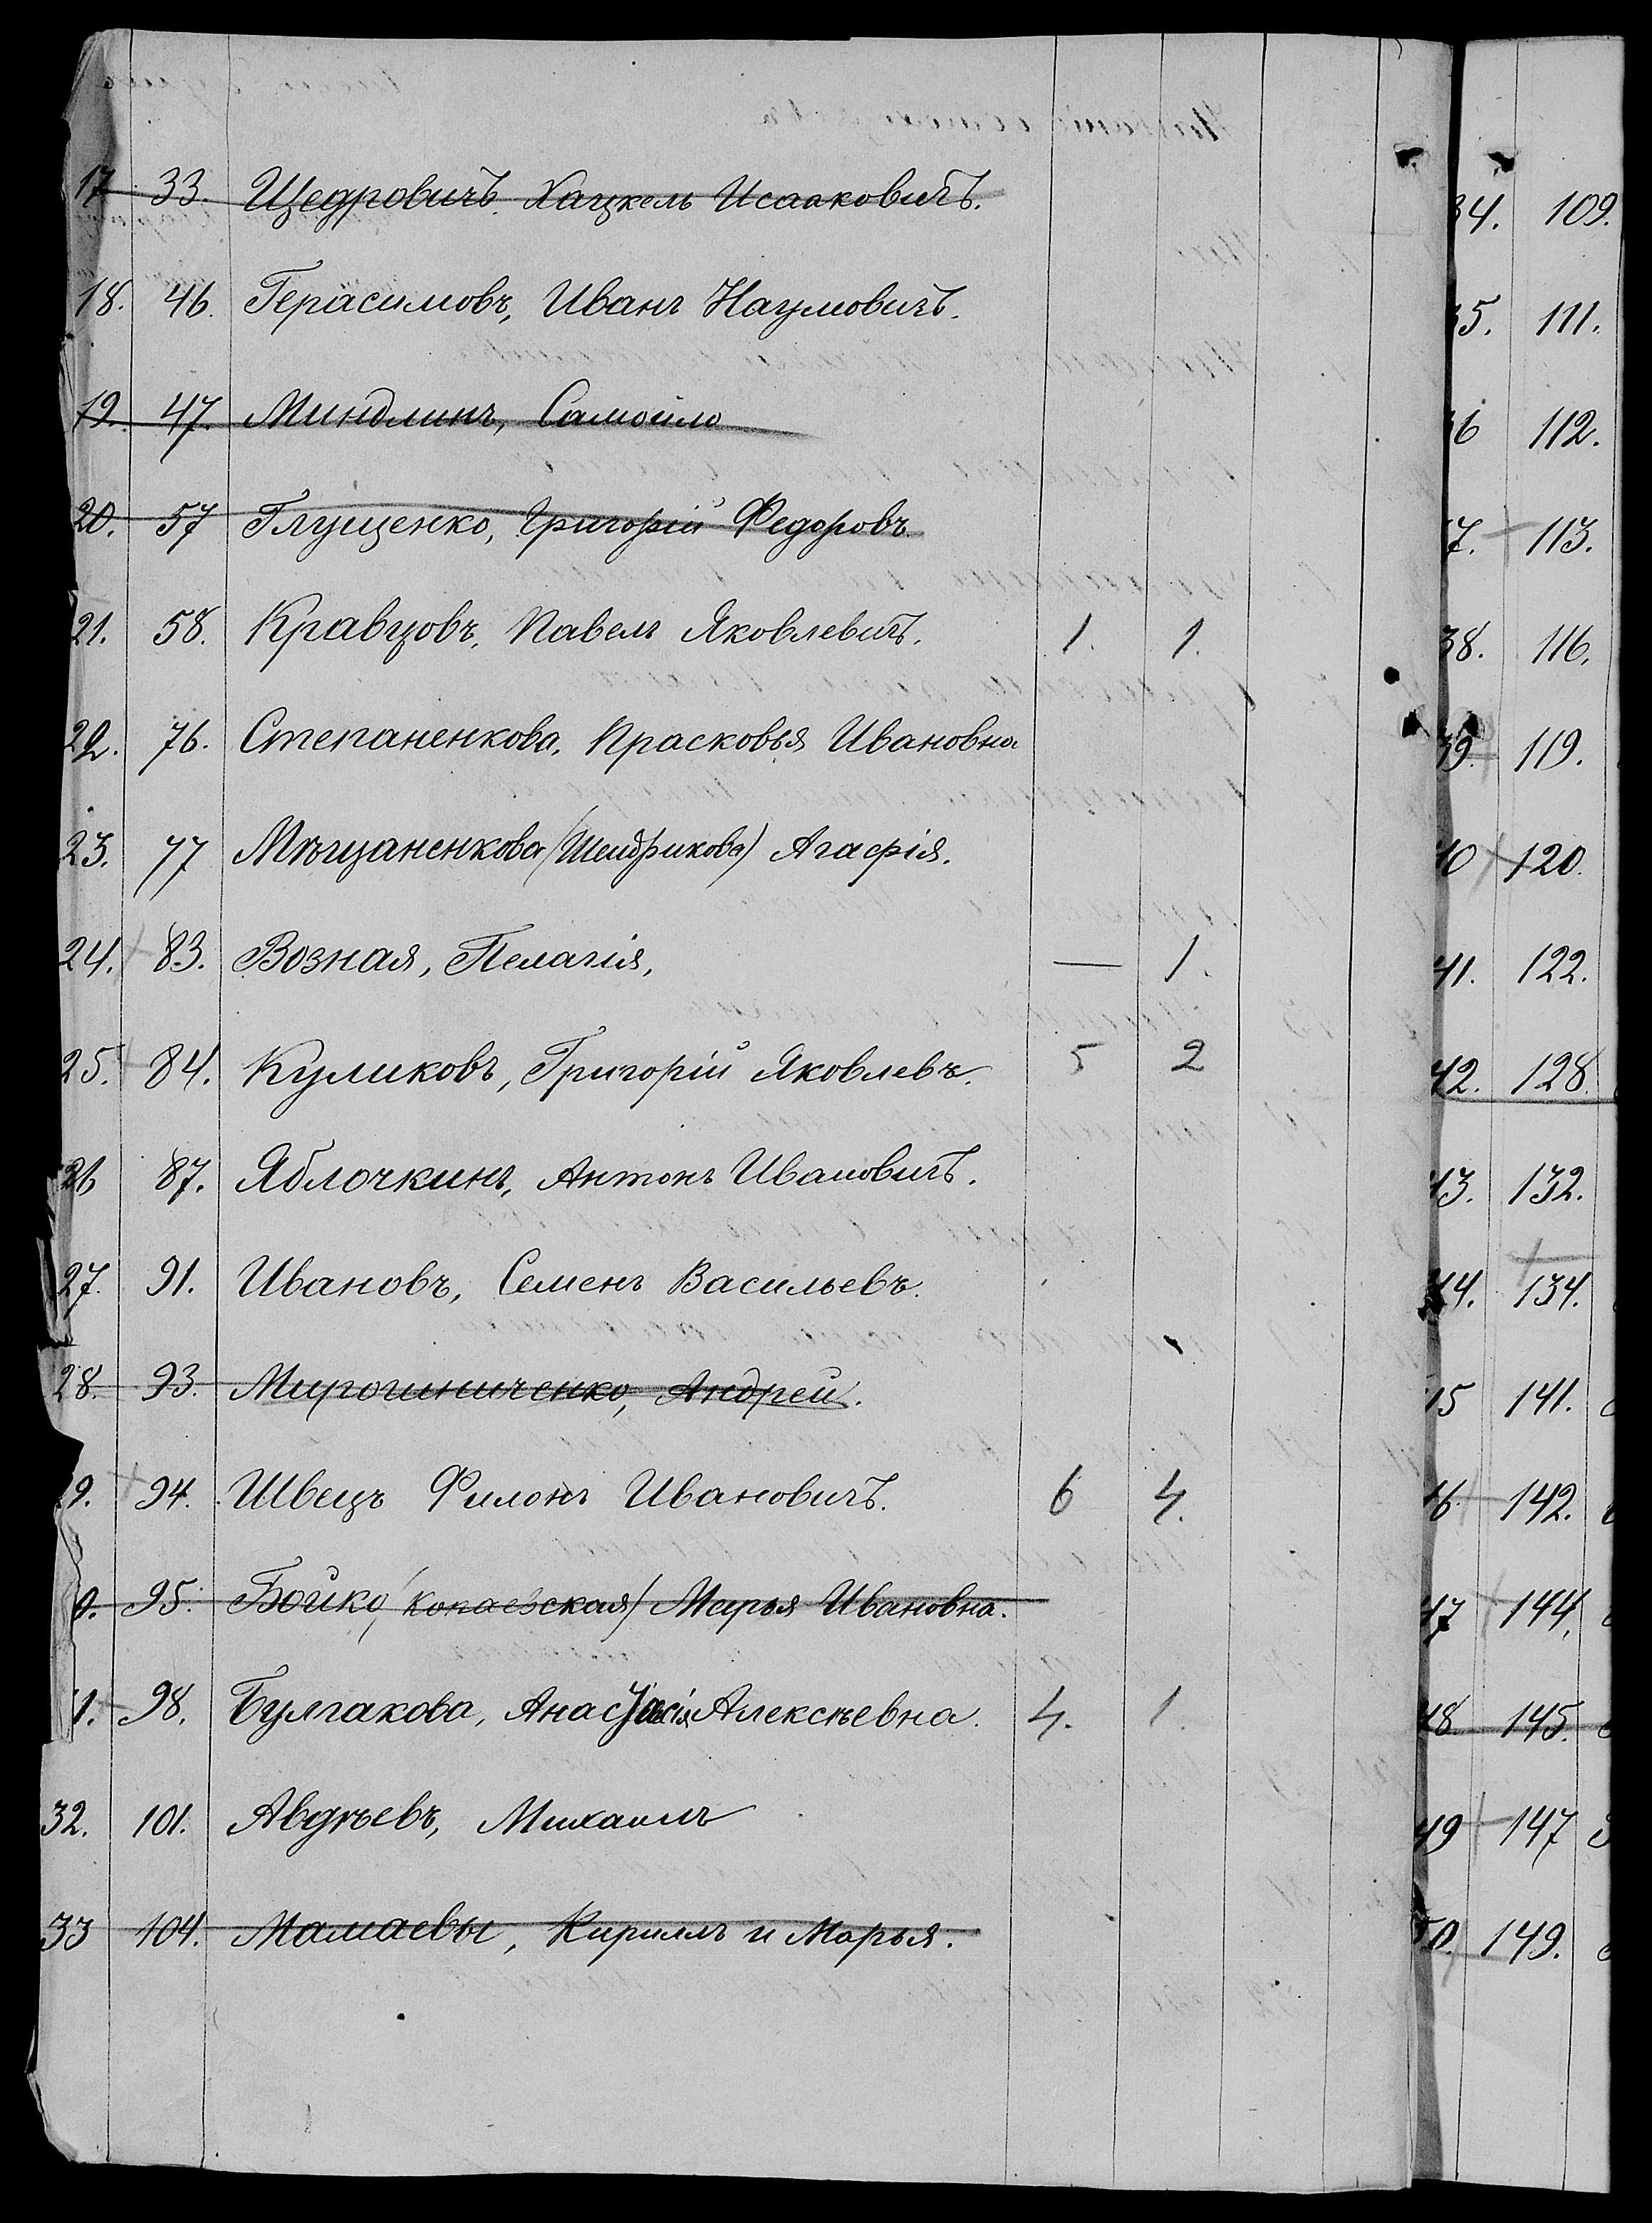 17 33. Щедровичъ. Хацкель Исааковичъ.
18. 46. Герасимовъ, Иванъ Наумовичъ.
19. 47. Миндлинъ, Самойло
20. 57 Глущенко, Григорій Федоровъ.
21. 58. Кравцовъ, Павелъ Яковлевичъ. 1. 1.
22. 76. Степаненкова, Прасковья Ивановна
23. 77 Мѣщаненкова (Шендрикова) Агафія.
24. 83. Возная, Пелагія, — 1.
25. 84. Куликовъ, Григорій Яковлевъ. 5 2
26 87. Яблочкинъ, Антонъ Ивановичъ.
27. 91. Ивановъ, Семенъ Васильевъ.
28. 93. Мирошниченко, Андрей.
9. 94. Швецъ Филонъ Ивановичъ. 6 4.
0. 95. Бойко (Копаевская) Марья Ивановна.
1. 98. Булгакова, Анастасія Алексѣевна. 4. 1.
32. 101. Авдѣевъ, Михаилъ
33 104. Мамаевы, Кириллъ и Марья.
34. 109.
35. 111.
36 112.
37. 113.
38. 116.
39. 119.
40 120.
41. 122.
42. 128.
43. 132.
44. 134.
45 141.
46. 142.
47 144.
48 145.
49 147
50. 149.